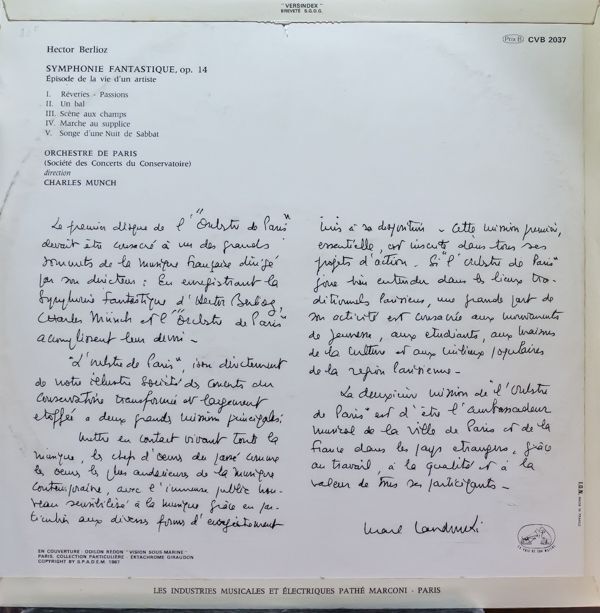 "VERSINDEX"
BREVETÉ S.G.D.G.
Prix B CVB 2037
Hector Berlioz
SYMPHONIE FANTASTIQUE, op. 14
Épisode de la vie d'un artiste
I. Rêveries - Passions
II. Un bal
III. Scène aux champs
IV. Marche au supplice
V. Songe d'une Nuit de Sabbat
ORCHESTRE DE PARIS
(Société des Concerts du Conservatoire)
direction
CHARLES MUNCH
Le premier disque de l'"Orchestre de Paris"
devait être consacré à un des grands
sommets de la musique française dirigé
par son directeur : En enregistrant la
Symphonie fantastique d'Hector Berlioz,
Charles Münch et l'"Orchestre de Paris"
accomplissent leur devoir -
"L'Orchestre de Paris", issu directement
de notre illustre Société des concerts du
Conservatoire transformée et largement
étoffée a deux grandes missions principales :
Mettre en contact vivant toute la
musique, les chefs d'oeuvres du passé comme
les oeuvres les plus audacieuses de la musique
contemporaine, avec l'immense public nou-
veau sensibilisé à la musique grâce en par-
ticulier aux diverses formes d'enregistrement
mis à sa disposition - Cette mission première,
essentielle, est inscrite dans tous ses
projets d'action. Si "l'Orchestre de Paris"
fera bien entendre dans les lieux tra-
ditionnels Parisiens, une grande part de
son activité est consacrée aux mouvements
de Jeunesse, aux étudiants, aux maisons
de la Culture et aux milieux populaires
de la région Parisienne -
La deuxième mission de "l'Orchestre
de Paris" est d'être l'ambassadeur
musical de la ville de Paris et de la
France dans les pays étrangers, grâce
au travail, à la qualité et à la
valeur de tous ses participants -
Marcel Landowski
EN COUVERTURE : ODILON REDON "VISION SOUS-MARINE"
PARIS. COLLECTION PARTICULIÈRE - EKTACHROME GIRAUDON
COPYRIGHT BY S.P.A.D.E.M 1967
LA VOIX DE SON MAITRE
I.D.N. MADE IN FRANCE
LES INDUSTRIES MUSICALES ET ÉLECTRIQUES PATHÉ MARCONI - PARIS